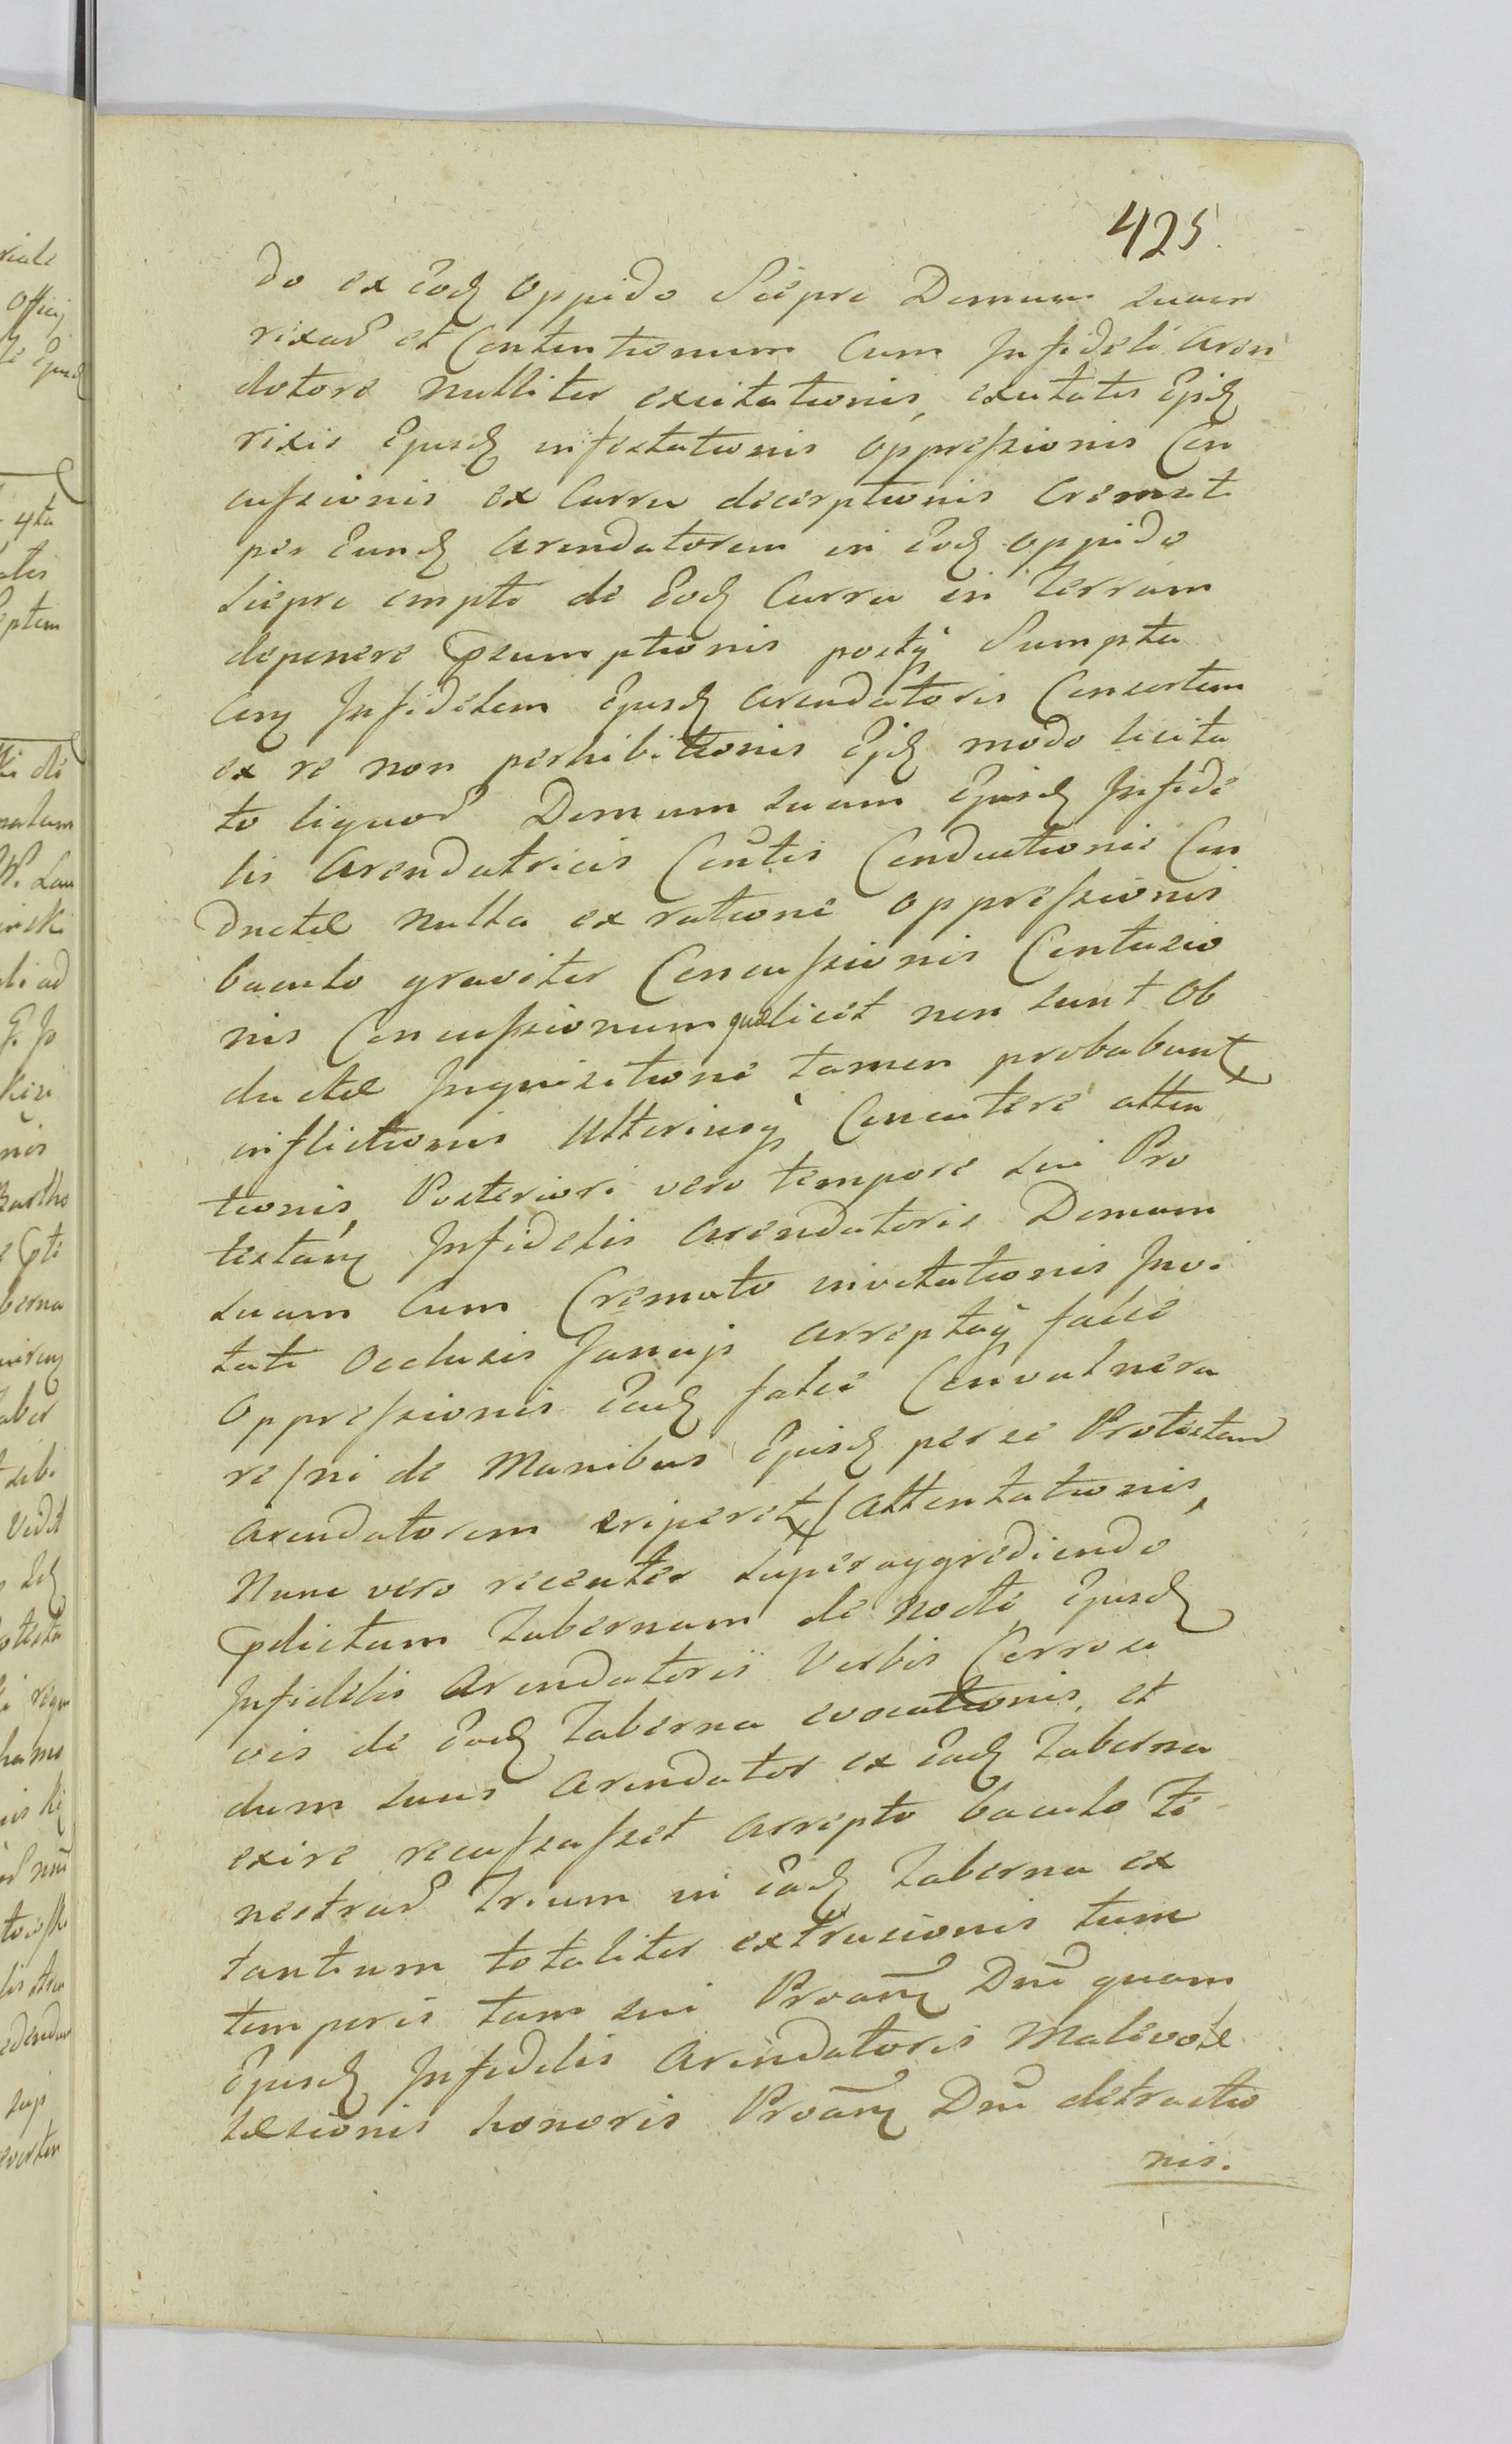 425.
do ex eod oppido Siepre Domum suam
rixar et Contentionum Cum Infideli Aren
datore nulliter excitationis, excitatis Ejsd
rixis Ejusd infestationis oppressionis Con
cussionis ex Curru decerptionis Cremati
per eund Arendatorem in eod oppido
Siepre empti de eod Curru in terram
deponere praesumptionis postq Sumpta
Infidelem Ejusd Arendatoris Consortem
ex re non perhibitionis Ejsd modo licita
to liquor Domum suam Ejusd Infide
lis Arendatricis Contis Conductionis Con
ductae nulla ex ratione oppressionis
baculo graviter Concussionis Contusio
nis Concussionum quae licet non sunt Ob
ductae Inquisitione tamen probabunt
inflictionis ulteriusq Concutere atten
tionis, Posteriori vero tempore sui Pro
testan Infidelis Arendatoris Domum
suam Cum Cremato invitationis Invi
tati Occlusis Januis arreptaq falce
Oppressionis ead falce Convulnera
re /ni de Manibus Ejusd per se Protestan
Arendatorem eriperet/ attentationis,
Nunc vero recenter superaggrediendo
pdictam Tabernam de nocte Ejusd
Infidelis Arendatoris Verbis Corrosi
vis de ead Taberna evocationis, et
dum suus Arendator ex ead Taberna
exire recussasset arrepto baculo fe
nestrar trium in ead Taberna ex
tantium totaliter extrusionis tum
temporis tam sui Proan Dni quam
Ejusd Infidelis Arendatoris Malevolae
laesionis honoris Proan Dni detractio
nis.